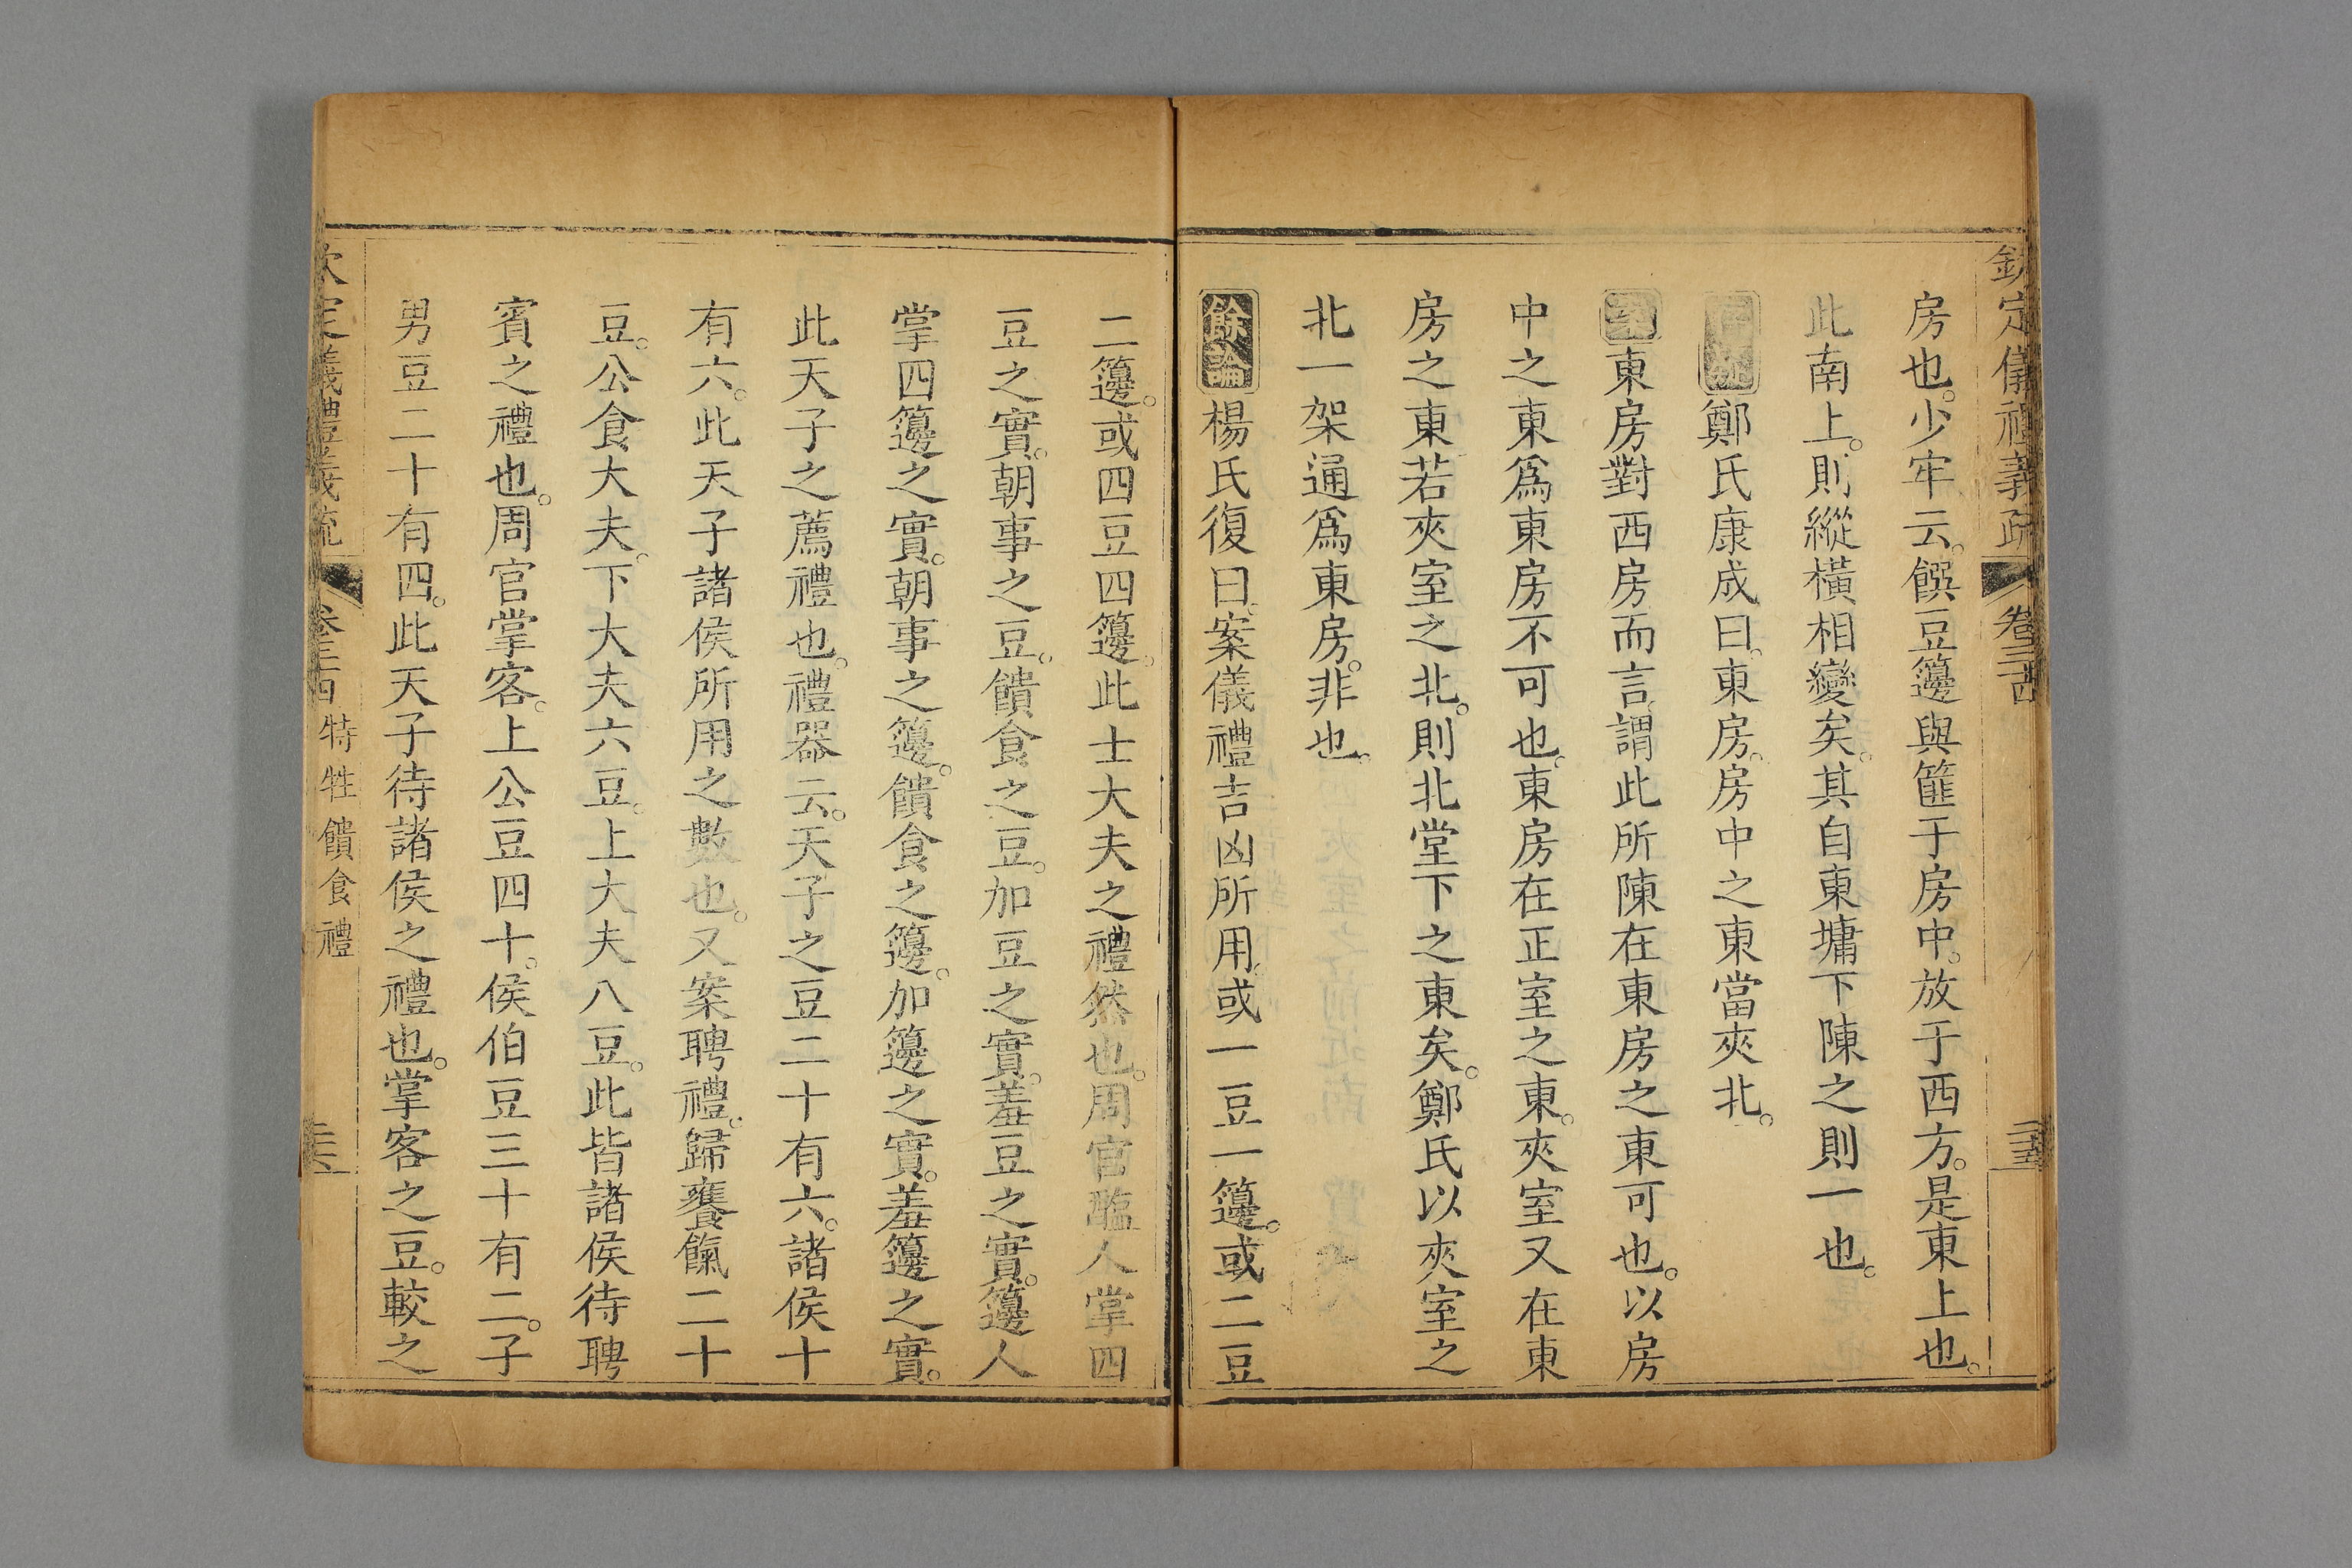 欽定儀禮義疏 卷三十四
房也。少牢云。饌豆籩與篚于房中。放于西方。是東上也。
此南上。則縱橫相變矣。其自東墉下陳之則一也。
存疑鄭氏康成曰。東房。房中之東當夾北。
案東房對西房而言。謂此所陳在東房之東可也。以房
中之東爲東房不可也。東房在正室之東。夾室又在東
房之東若夾室之北。則北堂下之東矣。鄭氏以夾室之
北一架通爲東房。非也。
餘論楊氏復曰。案儀禮吉凶所用。或一豆一籩。或二豆
二籩。或四豆四籩。此士大夫之禮然也。周官醢人掌四
豆之實。朝事之豆。饋食之豆。加豆之實。羞豆之實。籩人
掌四籩之實。朝事之籩。饋食之籩。加籩之實。羞籩之實。
此天子之薦禮也。禮器云。天子之豆二十有六。諸侯十
有六。此天子諸侯所用之數也。又案聘禮。歸饔餼二十
豆。公食大夫。下大夫六豆。上大夫八豆。此皆諸侯待聘
賓之禮也。周官掌客。上公豆四十。侯伯豆三十有二。子
男豆二十有四。此天子待諸侯之禮也。掌客之豆。較之
欽定儀禮義疏 卷三十四 特牲饋食禮